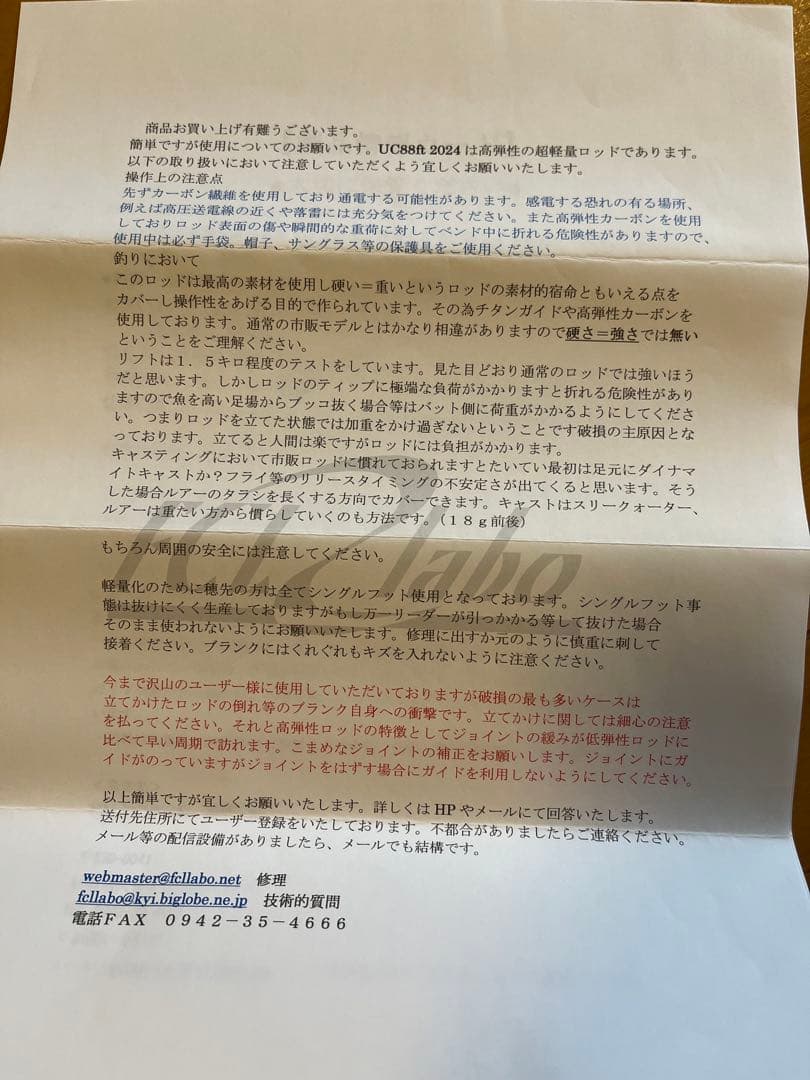 商品お買い上げ有難うございます。
簡単ですが使用についてのお願いです。UC88ft 2024 は高弾性の超軽量ロッドであります。
以下の取り扱いにおいて注意していただくよう宜しくお願いいたします。
操作上の注意点
先ずカーボン繊維を使用しており通電する可能性があります。感電する恐れの有る場所、
例えば高圧送電線の近くや落雷には充分気をつけてください。また高弾性カーボンを使用
しておりロッド表面の傷や瞬間的な重荷に対してベンド中に折れる危険性がありますので、
使用中は必ず手袋。帽子、サングラス等の保護具をご使用ください。
釣りにおいて
このロッドは最高の素材を使用し硬い＝重いというロッドの素材的宿命ともいえる点を
カバーし操作性をあげる目的で作られています。その為チタンガイドや高弾性カーボンを
使用しております。通常の市販モデルとはかなり相違がありますので硬さ＝強さでは無い
ということをご理解ください。
リフトは１．５キロ程度のテストをしています。見た目どおり通常のロッドでは強いほう
だと思います。しかしロッドのティップに極端な負荷がかかりますと折れる危険性があり
ますので魚を高い足場からブッコ抜く場合等はバット側に荷重がかかるようにしてくださ
い。つまりロッドを立てた状態では加重をかけ過ぎないということです破損の主原因とな
っております。立てると人間は楽ですがロッドには負担がかかります。
キャスティングにおいて市販ロッドに慣れておられますとたいてい最初は足元にダイナマ
イトキャストか？フライ等のリリースタイミングの不安定さが出てくると思います。そう
した場合ルアーのタラシを長くする方向でカバーできます。キャストはスリークォーター、
ルアーは重たい方から慣らしていくのも方法です。（１８ｇ前後）
もちろん周囲の安全には注意してください。
軽量化のために穂先の方は全てシングルフット使用となっております。シングルフット事
態は抜けにくく生産しておりますがもし万一リーダーが引っかかる等して抜けた場合
そのまま使われないようにお願いいたします。修理に出すか元のように慎重に刺して
接着ください。ブランクにはくれぐれもキズを入れないように注意ください。
今まで沢山のユーザー様に使用していただいておりますが破損の最も多いケースは
立てかけたロッドの倒れ等のブランク自身への衝撃です。立てかけに関しては細心の注意
を払ってください。それと高弾性ロッドの特徴としてジョイントの緩みが低弾性ロッドに
比べて早い周期で訪れます。こまめなジョイントの補正をお願いします。ジョイントにガ
イドがのっていますがジョイントをはずす場合にガイドを利用しないようにしてください。
以上簡単ですが宜しくお願いいたします。詳しくは HP やメールにて回答いたします。
送付先住所にてユーザー登録をいたしております。不都合がありましたらご連絡ください。
メール等の配信設備がありましたら、メールでも結構です。
webmaster@fcllabo.net 修理
fcllabo@kyi.biglobe.ne.jp 技術的質問
電話ＦＡＸ ０９４２－３５－４６６６